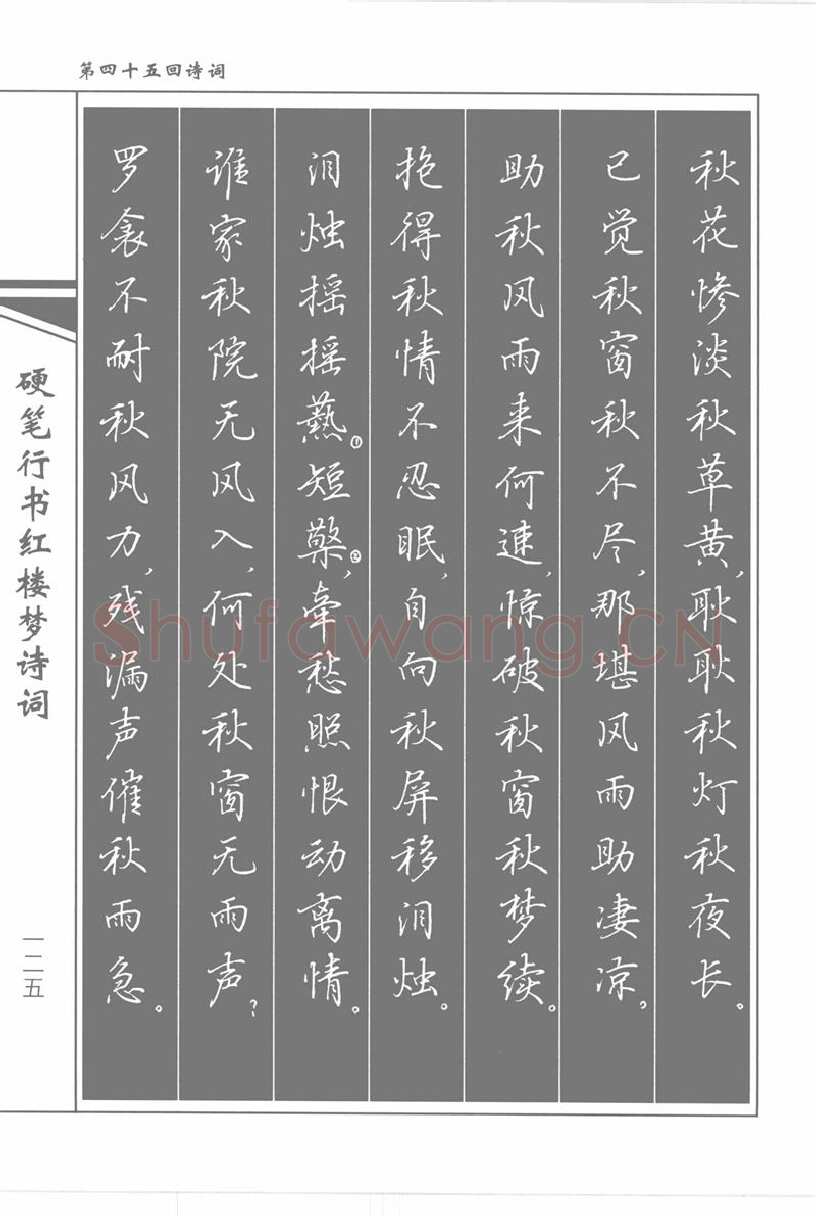 第四十五回诗词
秋花惨淡秋草黄,耿耿秋灯秋夜长。
已觉秋窗秋不尽,那堪风雨助凄凉。
助秋风雨来何速,惊破秋窗秋梦续。
抱得秋情不忍眠,自向秋屏移泪烛。
泪烛摇摇爇①短檠②,牵愁照恨动离情。
谁家秋院无风入,何处秋窗无雨声?
罗衾不耐秋风力,残漏声催秋雨急。
硬笔行书红楼梦诗词
一二五
Shufawang.CN